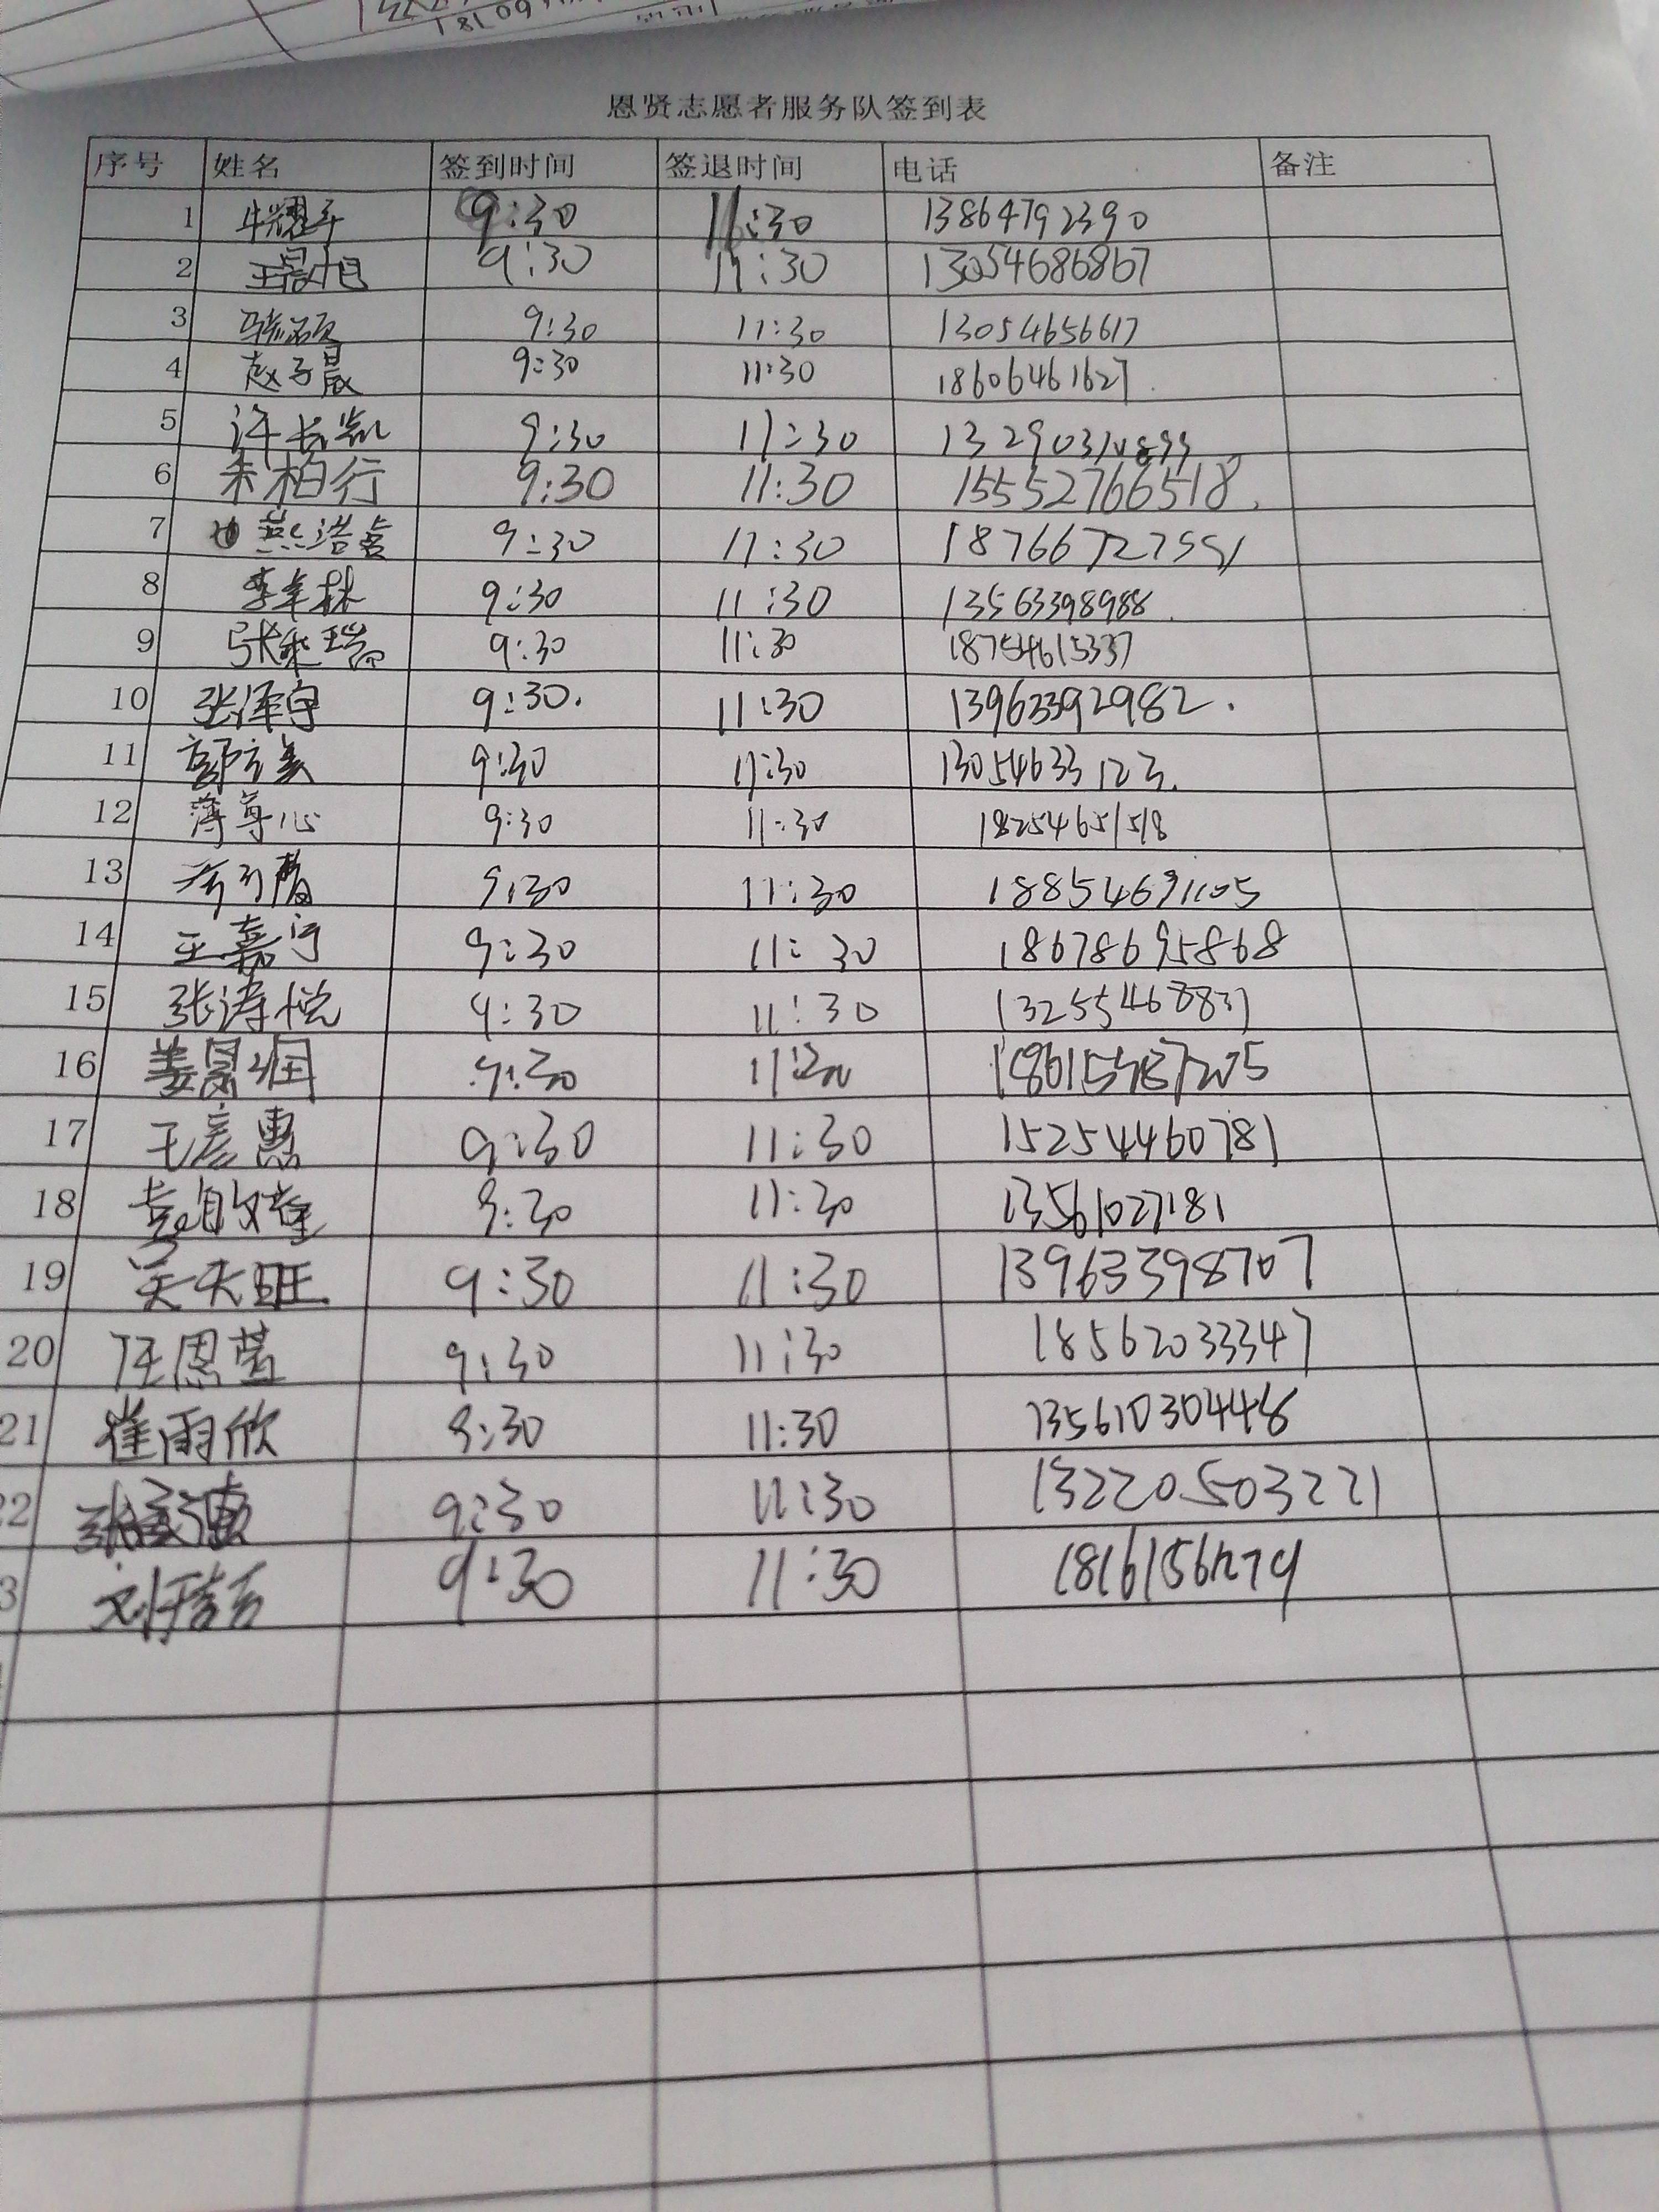 恩贤志愿者服务队签到表
序号 姓名 签到时间 签退时间 电话 备注
1 9:30 11:30 13864792390
2 王晨旭 9:30 11:30 13054686867
3 张硕 9:30 11:30 13054656617
4 赵子晨 9:30 11:30 18606461627
5 许长凯 9:30 11:30
6 朱柏行 9:30 11:30 15552766518
7 燕浩喜 9:30 11:30 18766727551
8 李幸林 9:30 11:30 13563398988
9 张乘瑞 9:30 11:30 18754615337
10 张泽宇 9:30. 11:30 13963392982.
11 郭方美 9:30 11:30 13054633123.
12 薄尊心 9:30 11:30 18254651518
13 9:30 11:30 18854691105
14 王嘉宁 9:30 11:30 18678695868
15 张涛悦 9:30 11:30 13255468837
16 姜景润 9:30 11:30
17 王彦惠 9:30 11:30 15254460781
18 袁 9:30 11:30 13561027181
19 吴天旺 9:30 11:30 13963398707
20 汪恩萱 9:30 11:30 18562033347
21 崔雨欣 9:30 11:30 13561030448
22 9:30 11:30 13220503221
3 刘 9:30 11:30 18161561279